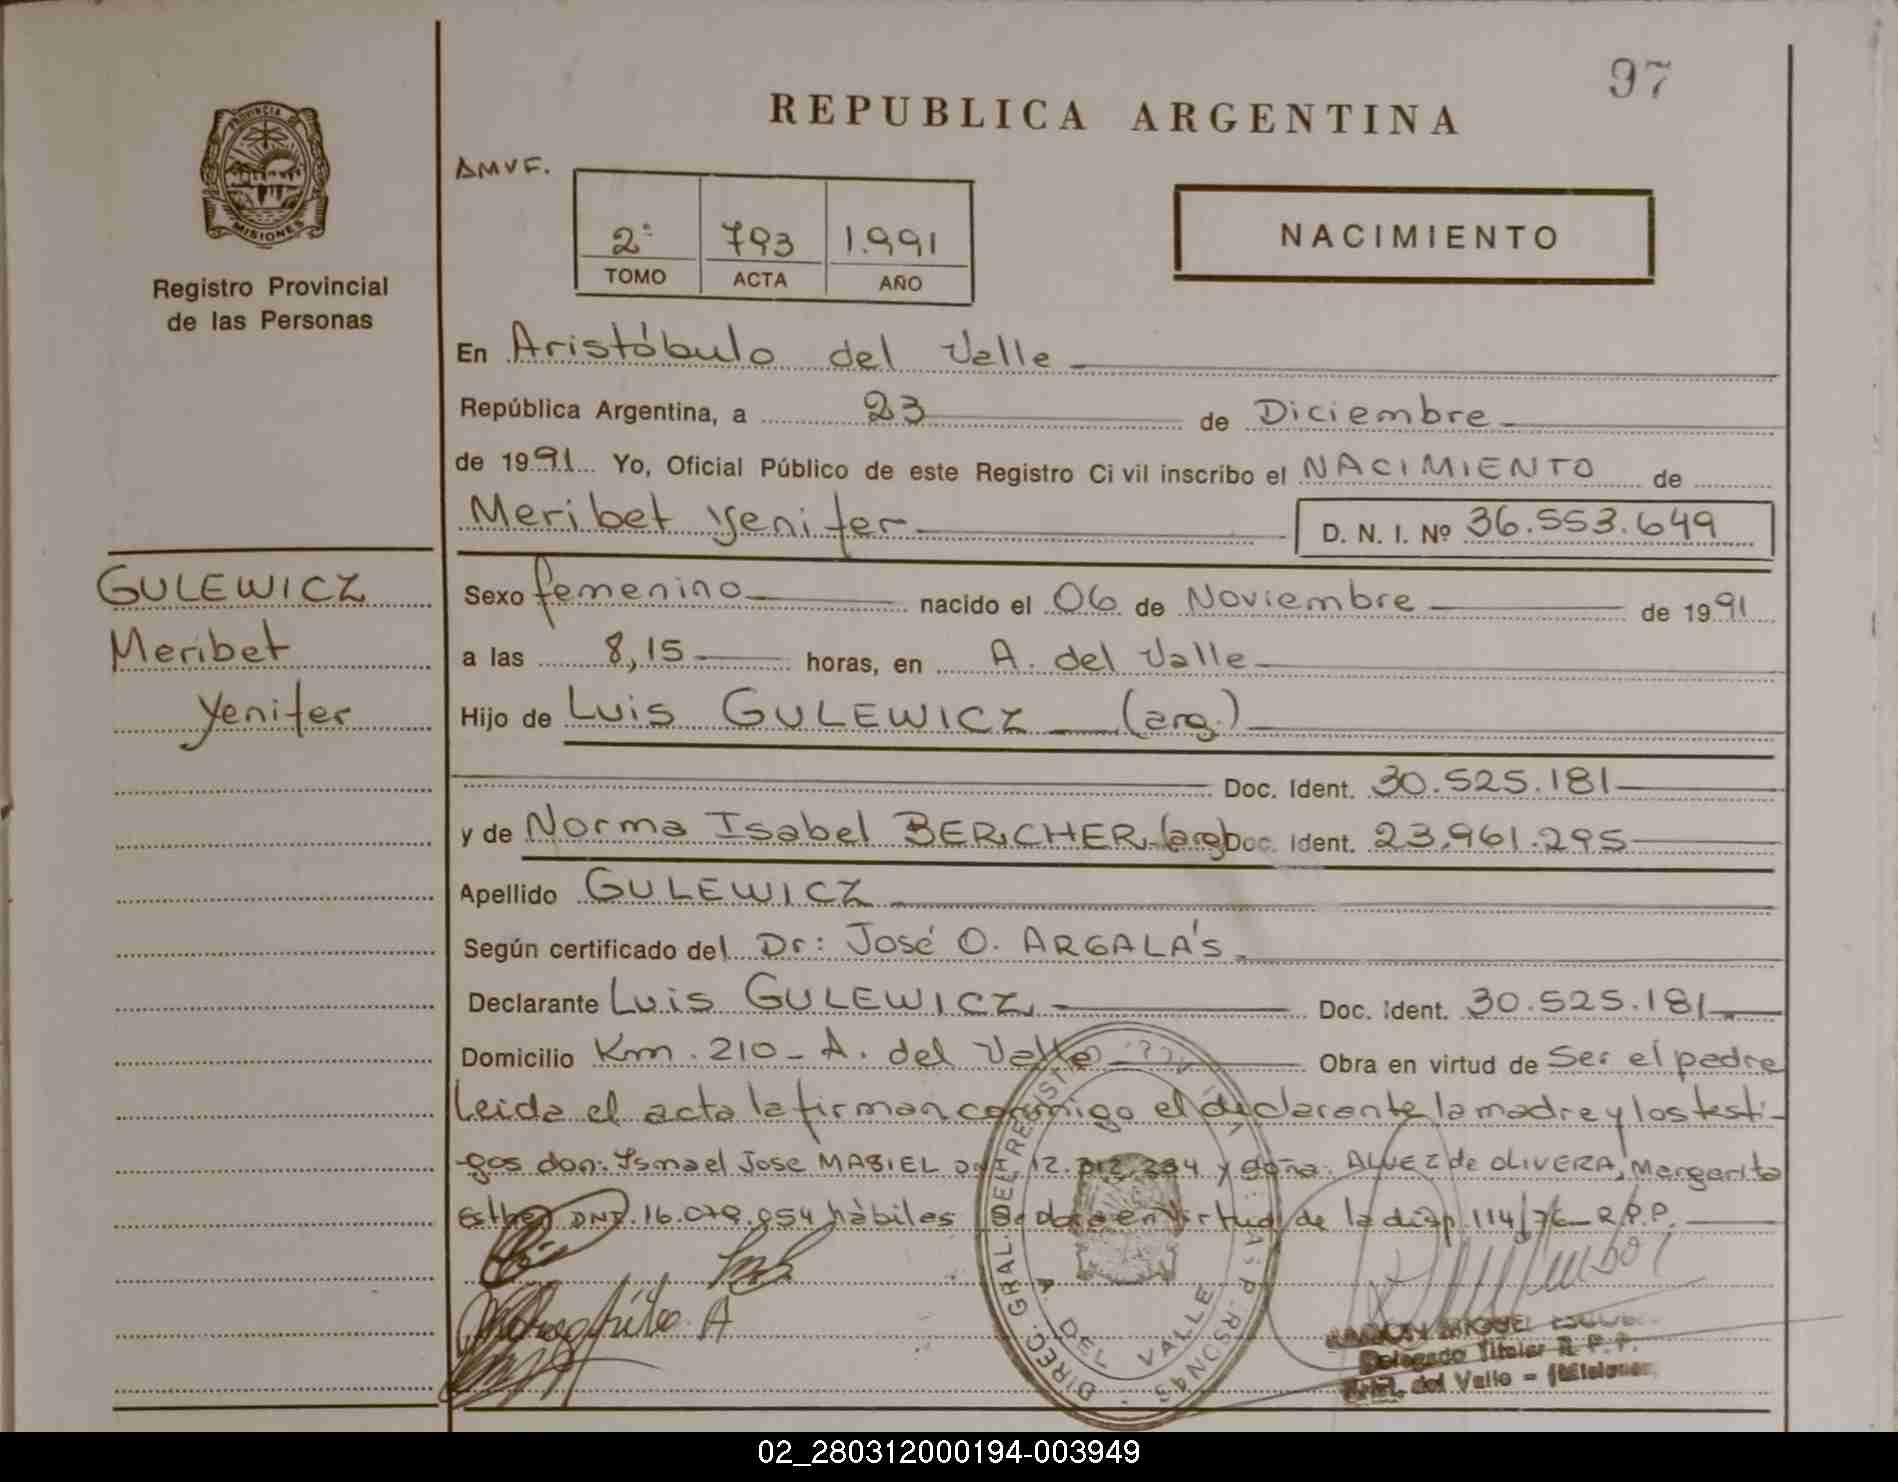 97
REPUBLICA ARGENTINA
PROVINCIA DE
MISIONES
Registro Provincial
de las Personas
AMVF.
2º 793 1.991
TOMO ACTA AÑO
NACIMIENTO
En Aristóbulo del Valle
República Argentina, a 23 de Diciembre
de 1991 Yo, Oficial Público de este Registro Civil inscribo el NACIMIENTO de
Meribet Yenifer D. N. I. Nº 36.553.649
GULEWICZ
Meribet
Yenifer
Sexo femenino nacido el 06 de Noviembre de 1991
a las 8,15 horas, en A. del Valle
Hijo de Luis GULEWICZ (arg.)
Doc. Ident. 30.525.181
y de Norma Isabel BERCHER (arg) Doc. Ident. 23.961.295
Apellido GULEWICZ
Según certificado del Dr: José O. ARGALA'S
Declarante Luis GULEWICZ Doc. Ident. 30.525.181
Domicilio Km. 210 - A. del Valle Obra en virtud de Ser el padre
Leida el acta la firman conmigo el declarante la madre y los testi-
gos don: Ismael Jose MASIEL DNI 12. y doña: ALVEZ de OLIVERA, Margarita
Esther DNI. 16.079.954 hàbiles Se dara en virtud de la disp. 114/76 R.P.P.
Margarita A
DIREC. GRAL. DEL REGISTRO
A. DEL VALLE
RAMON MIGUEL
Delegado Titular R. P. P.
Arist. del Valle - (Misiones)
02_280312000194-003949